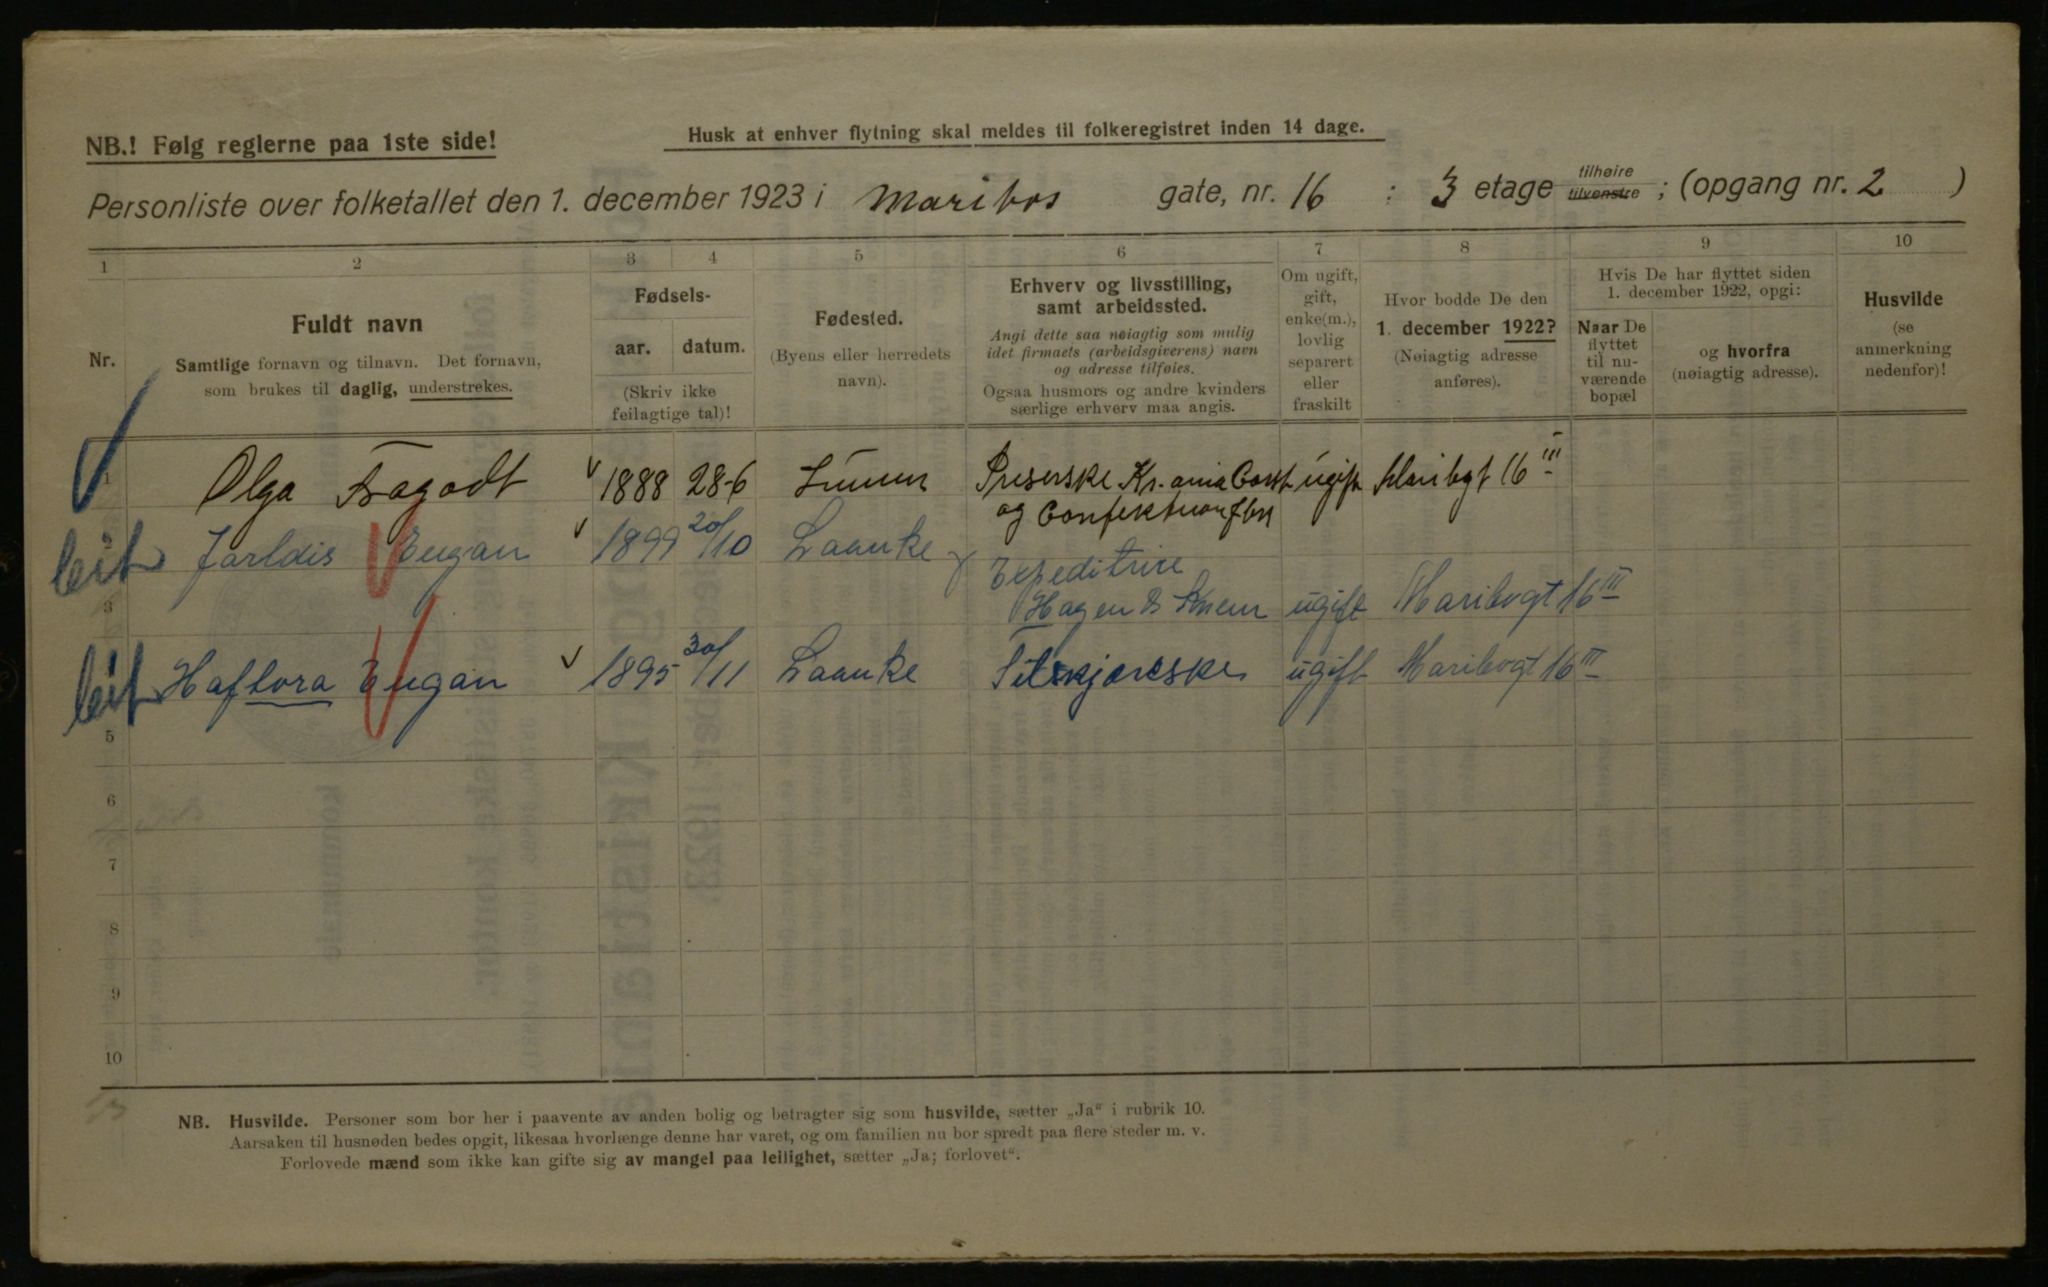 NB.! Følg reglerne paa 1ste side!
Husk at enhver flytning skal meldes til folkeregistret inden 14 dage.
Personliste over folketallet den 1. december 1923 i Maribos gate, nr. 16 : 3 etage tilhøire tilvenstre ; (opgang nr. 2 )
1 2 3 4 5 6 7 8 9 10
Nr.
Fuldt navn
Samtlige fornavn og tilnavn. Det fornavn,
som brukes til daglig, understrekes.
Fødsels-
aar. datum.
(Skriv ikke
feilagtige tal)!
Fødested.
(Byens eller herredets
navn).
Erhverv og livsstilling,
samt arbeidssted.
Angi dette saa nøiagtig som mulig
idet firmaets (arbeidsgiverens) navn
og adresse tilføies.
Ogsaa husmors og andre kvinders
særlige erhverv maa angis.
Om ugift,
gift,
enke(m.),
lovlig
separert
eller
fraskilt
Hvor bodde De den
1. december 1922?
(Nøiagtig adresse
anføres).
Hvis De har flyttet siden
1. december 1922, opgi:
Naar De
flyttet
til nu-
værende
bopæl
og hvorfra
(nøiagtig adresse).
Husvilde
(se
anmerkning
nedenfor)!
1 Olga 1888 28-6 Preserske Kr.ania ugift Maribgt 16 III
og
leit Jarldis Eugan 1899 20/10 Laanke Expeditrice
3 Hagen & ugift Maribogt 16 III
leit Haflora Eugan 1895 30/11 Laanke ugift Maribogt 16 III
5
6
7
8
9
10
NB. Husvilde. Personer som bor her i paavente av anden bolig og betragter sig som husvilde, sætter „Ja“ i rubrik 10.
Aarsaken til husnøden bedes opgit, likesaa hvorlænge denne har varet, og om familien nu bor spredt paa flere steder m. v.
Forlovede mænd som ikke kan gifte sig av mangel paa leilighet, sætter „Ja; forlovet“.